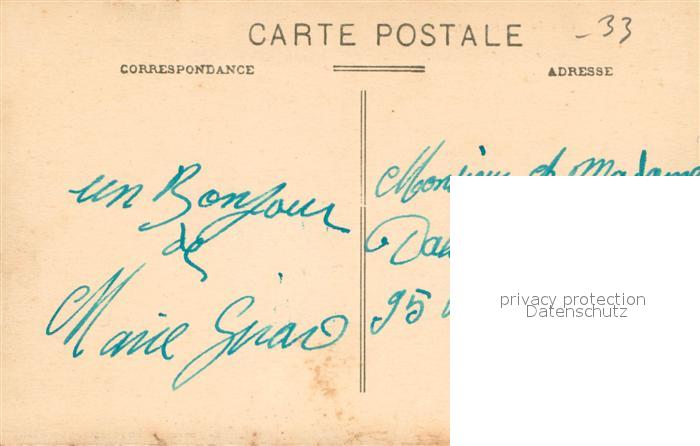 CARTE POSTALE
- 33
CORRESPONDANCE
ADRESSE
un Bonjour
de
Marie Girard
Monsieur et Madame
95
privacy protection
Datenschutz